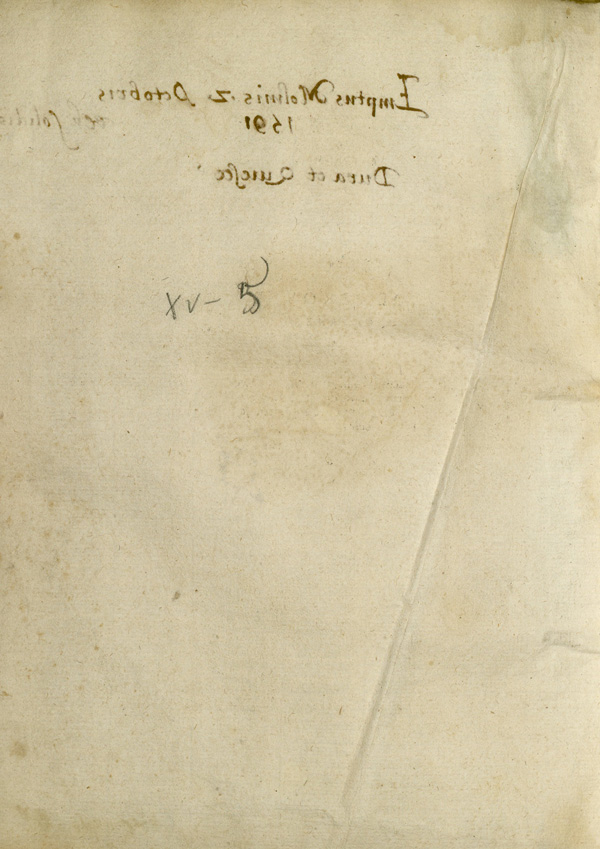 Emptus Molinis. 2. Octobris
1591
Dura et Quiesce
XV- 5